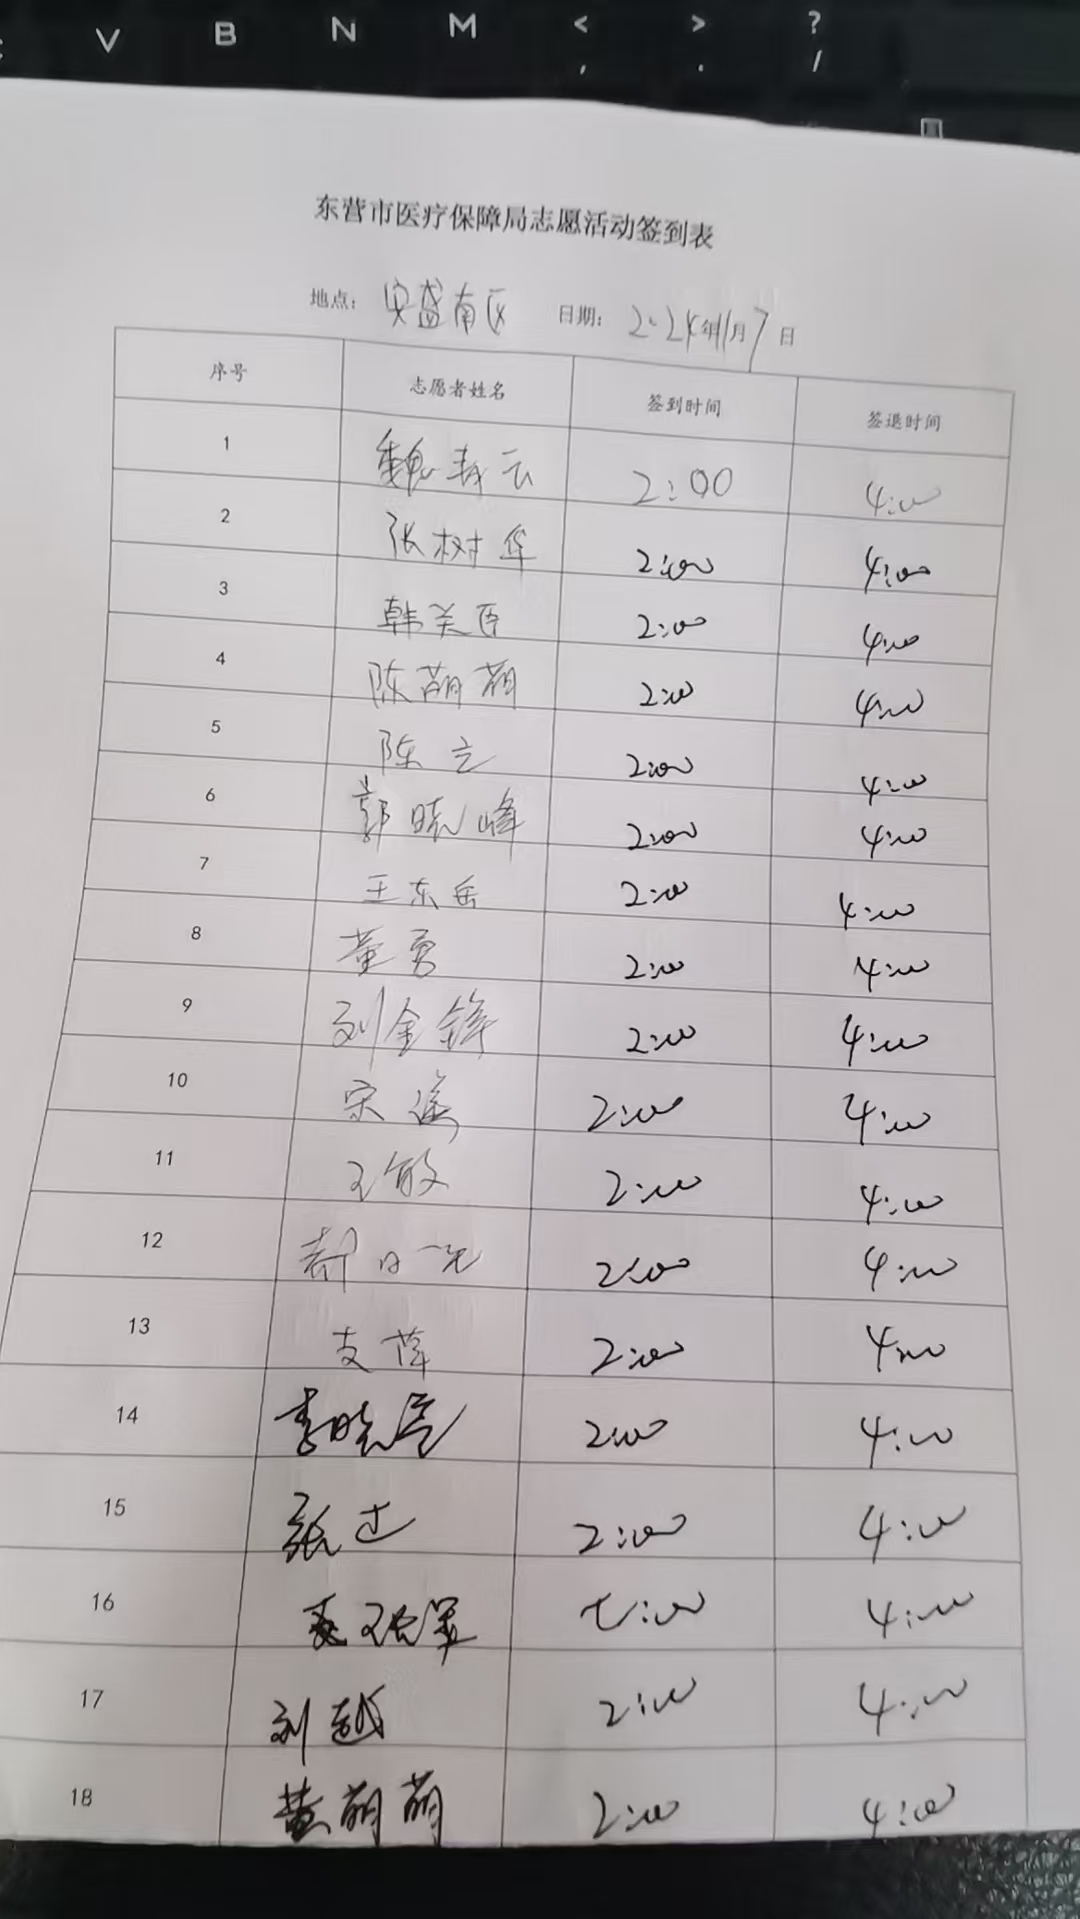 V B N M < >  ?
, . /
东营市医疗保障局志愿活动签到表
地点: 安盛南区 日期: 2024年11月7日
序号 志愿者姓名 签到时间 签退时间
1 魏 2:00 4:00
2 张树华 2:00 4:00
3 韩美臣 2:00 4:00
4 陈萌萌 2:00 4:00
5 陈立 2:00 4:00
6 郭晓峰 2:00 4:00
7 王东岳 2:00 4:00
8 董勇 2:00 4:00
9 刘金锋 2:00 4:00
10 宋 2:00 4:00
11 王敏 2:00 4:00
12 2:00 4:00
13 支萍 2:00 4:00
14 李晓 2:00 4:00
15 张 2:00 4:00
16 :00 4:00
17 刘越 2:00 4:00
18 黄萌萌 2:00 4:00